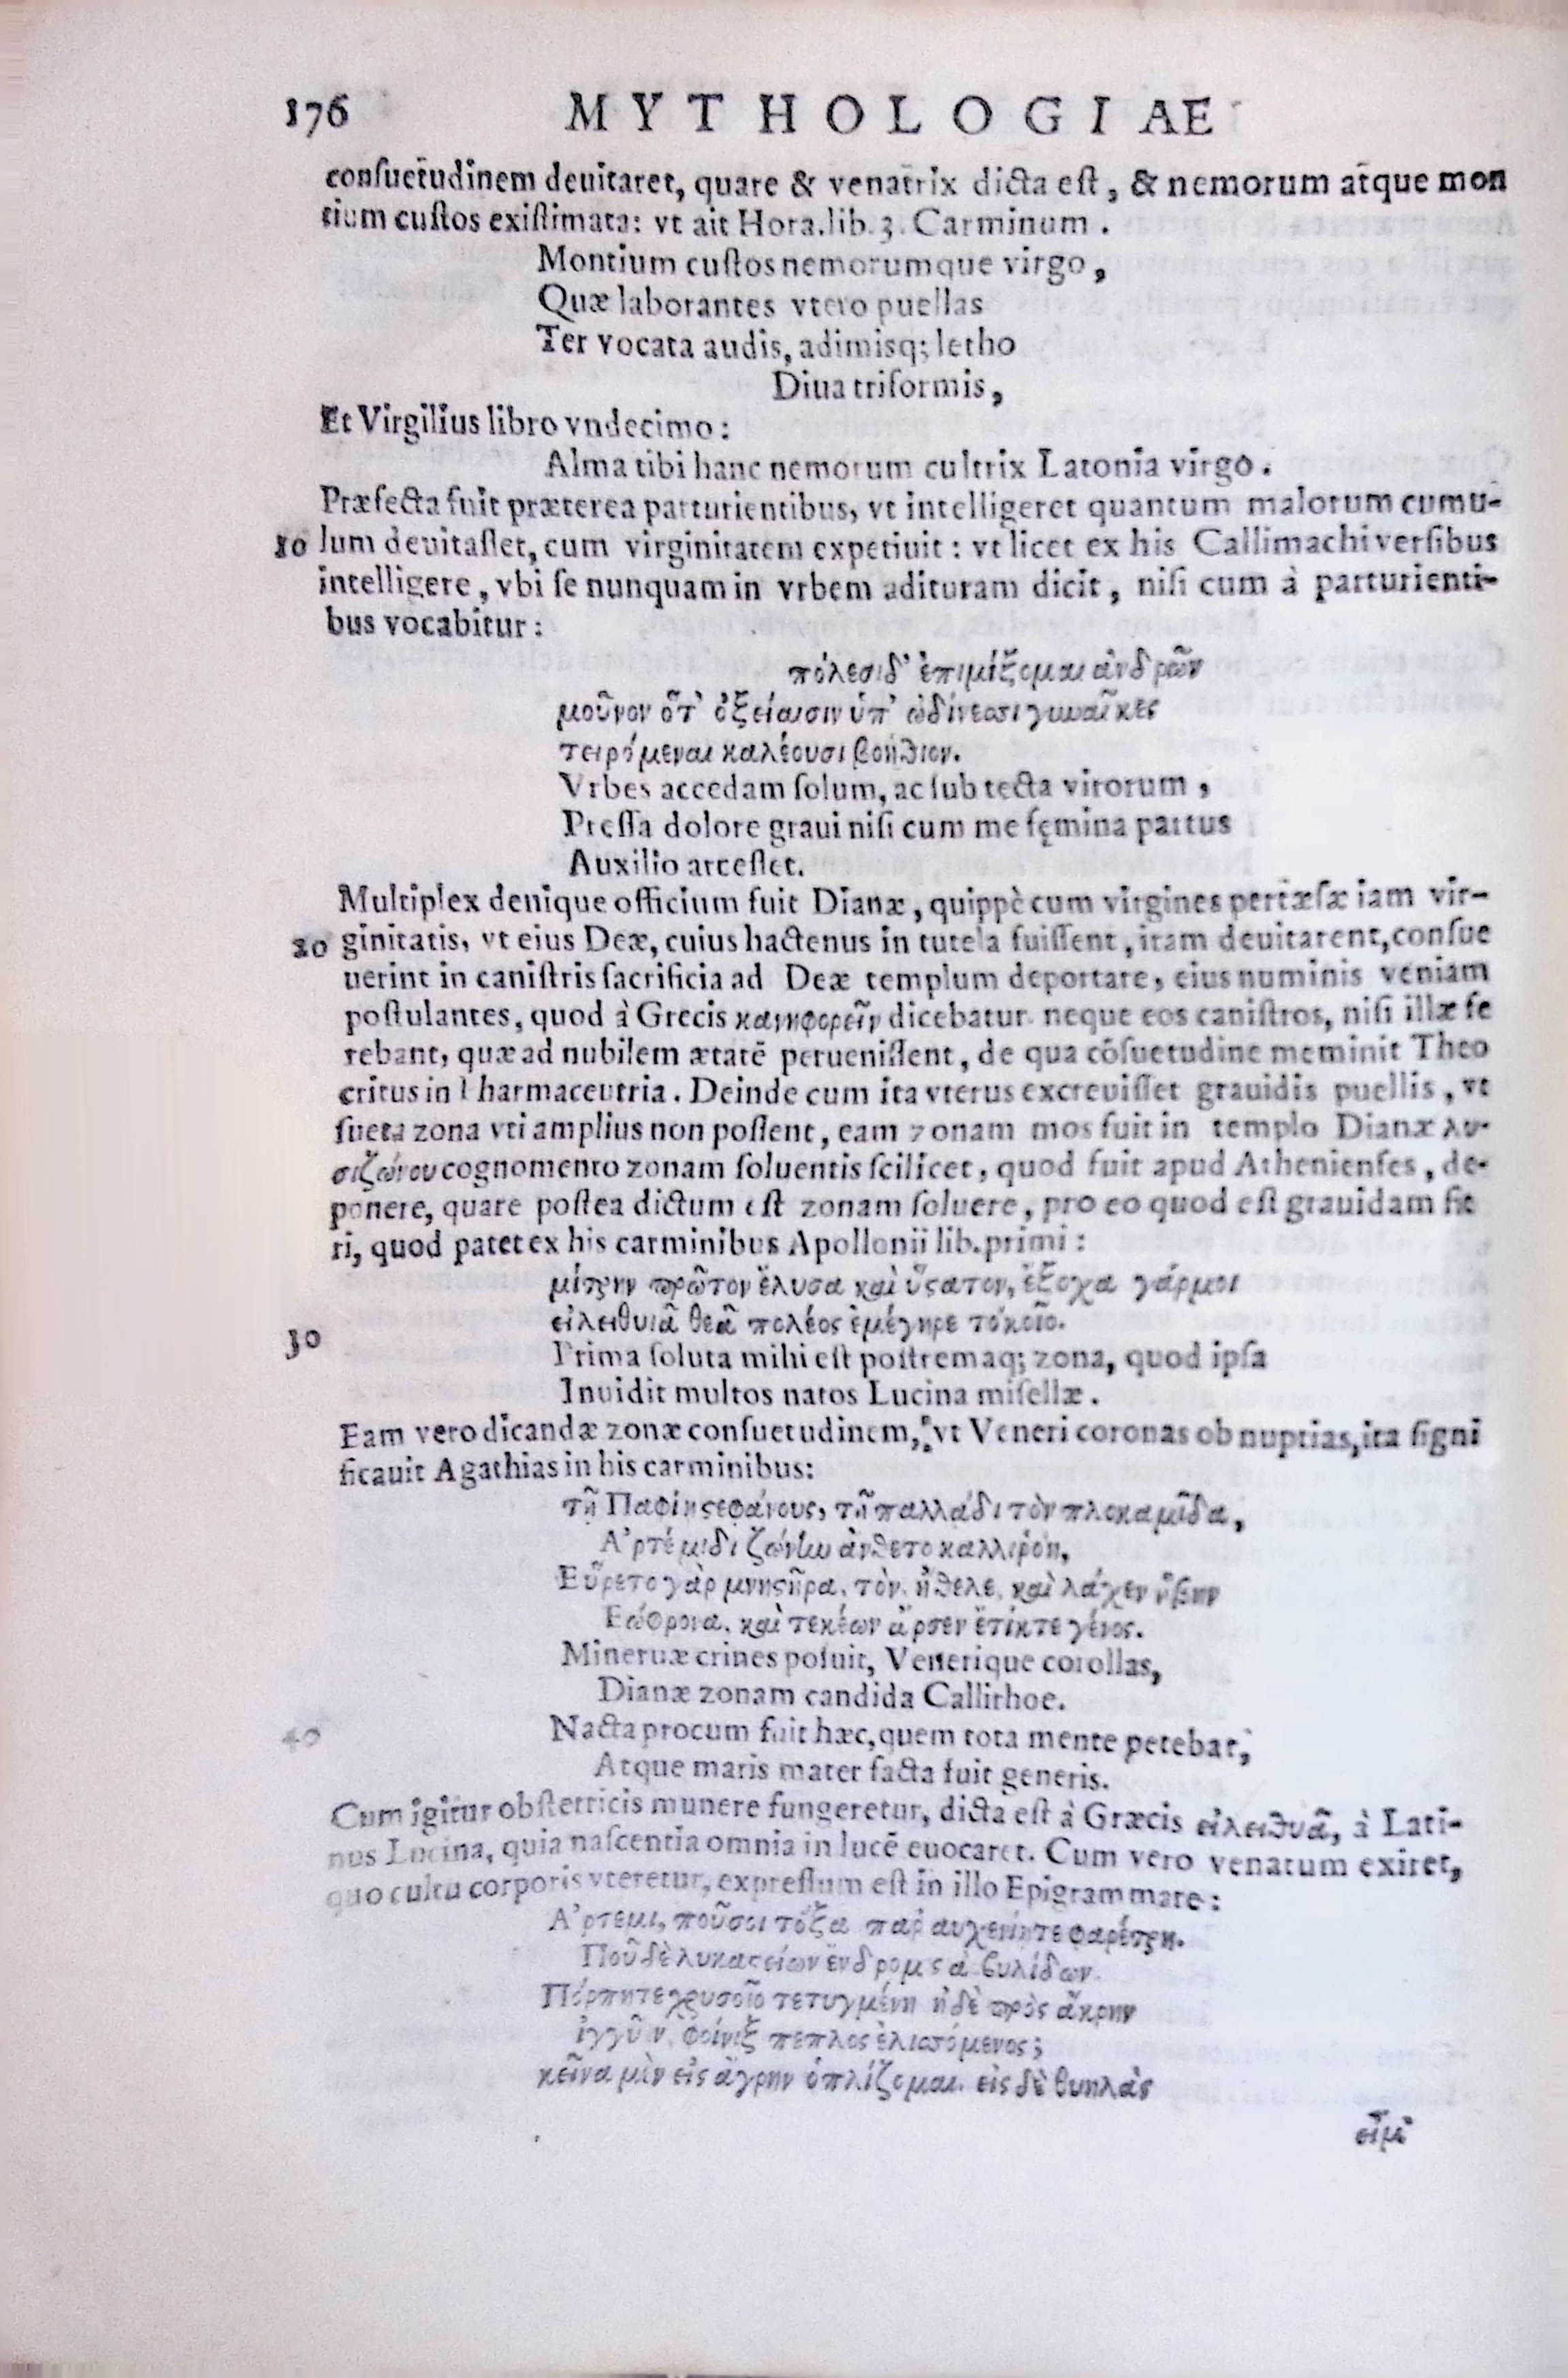 176 MYTHOLOGIAE
consuetudinem deuitaret, quare & venatrix dicta est, & nemorum atque mon
tium custos existimata: vt ait Hora.lib.3. Carminum.
Montium custos nemorumque virgo,
Quæ laborantes vtero puellas
Ter vocata audis, adimisq; letho
Diua triformis,
Et Virgilius libro vndecimo:
Alma tibi hanc nemorum cultrix Latonia virgo.
Præfecta fuit præterea parturientibus, vt intelligeret quantum malorum cumu-
10 lum deuitasset, cum virginitatem expetiuit: vt licet ex his Callimachi versibus
intelligere, vbi se nunquam in vrbem adituram dicit, nisi cum à parturienti-
bus vocabitur:
πόλεσι δ' ἐπιμίξομαι ἀνδρῶν
μοῦνον ὅτ' ὀξείαισιν ὑπ' ὠδίνεσσι γυναῖκες
τειρόμεναι καλέουσι βοήθιον.
Vrbes accedam solum, ac sub tecta virorum,
Pressa dolore graui nisi cum me fęmina partus
Auxilio arcesset.
Multiplex denique officium fuit Dianæ, quippè cum virgines pertæsæ iam vir-
20 ginitatis, vt eius Deæ, cuius hactenus in tutela fuissent, iram deuitarent, consue
uerint in canistris sacrificia ad Deæ templum deportare, eius numinis veniam
postulantes, quod à Grecis κανηφορεῖν dicebatur neque eos canistros, nisi illæ fe
rebant, quæ ad nubilem ætatē peruenissent, de qua cōsuetudine meminit Theo
critus in Pharmaceutria. Deinde cum ita vterus excreuisset grauidis puellis, vt
sueta zona vti amplius non possent, eam zonam mos fuit in templo Dianæ λυ-
σιζώνου cognomento zonam soluentis scilicet, quod fuit apud Athenienses, de-
ponere, quare postea dictum est zonam soluere, pro eo quod est grauidam fie
ri, quod patet ex his carminibus Apollonii lib.primi:
μίτρην πρῶτον ἔλυσα καὶ ὕστατον, ἔξοχα γάρ μοι
30 εἰλειθυιᾶ θεᾶ πολέος ἐμέγηρε τόκοῖο.
Prima soluta mihi est postremaq; zona, quod ipsa
Inuidit multos natos Lucina misellæ.
Eam vero dicandæ zonæ consuetudinem, vt Veneri coronas ob nuptias, ita signi
ficauit Agathias in his carminibus:
τῆ Παφίη στεφάνους, τῆ παλλάδι τὸν πλοκαμῖδα,
Ἀρτέμιδι ζώνην ἄνθετο καλλιρόη,
Εὕρετο γὰρ μνηστῆρα, τὸν ἤθελε, καὶ λάχεν ἥβην
Εώφρονα, καὶ τεκέων ἄρσεν ἔτίκτε γένος.
Mineruæ crines posuit, Venerique corollas,
Dianæ zonam candida Callirhoe.
40 Nacta procum fuit hæc, quem tota mente petebat,
Atque maris mater facta fuit generis.
Cum igitur obstetricis munere fungeretur, dicta est à Græcis εἰλειθυᾶ, à Lati-
nus Lucina, quia nascentia omnia in lucē euocaret. Cum vero venatum exiret,
quo cultu corporis vteretur, expressum est in illo Epigrammate:
Ἄρτεμι, ποῦ σοι τόξα παρ αυχενίη τε φαρέτρη.
Ποῦ δὲ λυκαστείων ἔνδρομὶς ἀρβυλίδων.
Πόρπη τε χρυσοῖο τετυγμένη ἠδὲ πρὸς ἄκρην
ἰγγῦν, φοίνιξ πεπλος ἑλισσόμενος;
κεῖνα μὲν εἰς ἄγρην ὁπλίζομαι. εἰς δὲ θυηλὰς
εἶμι